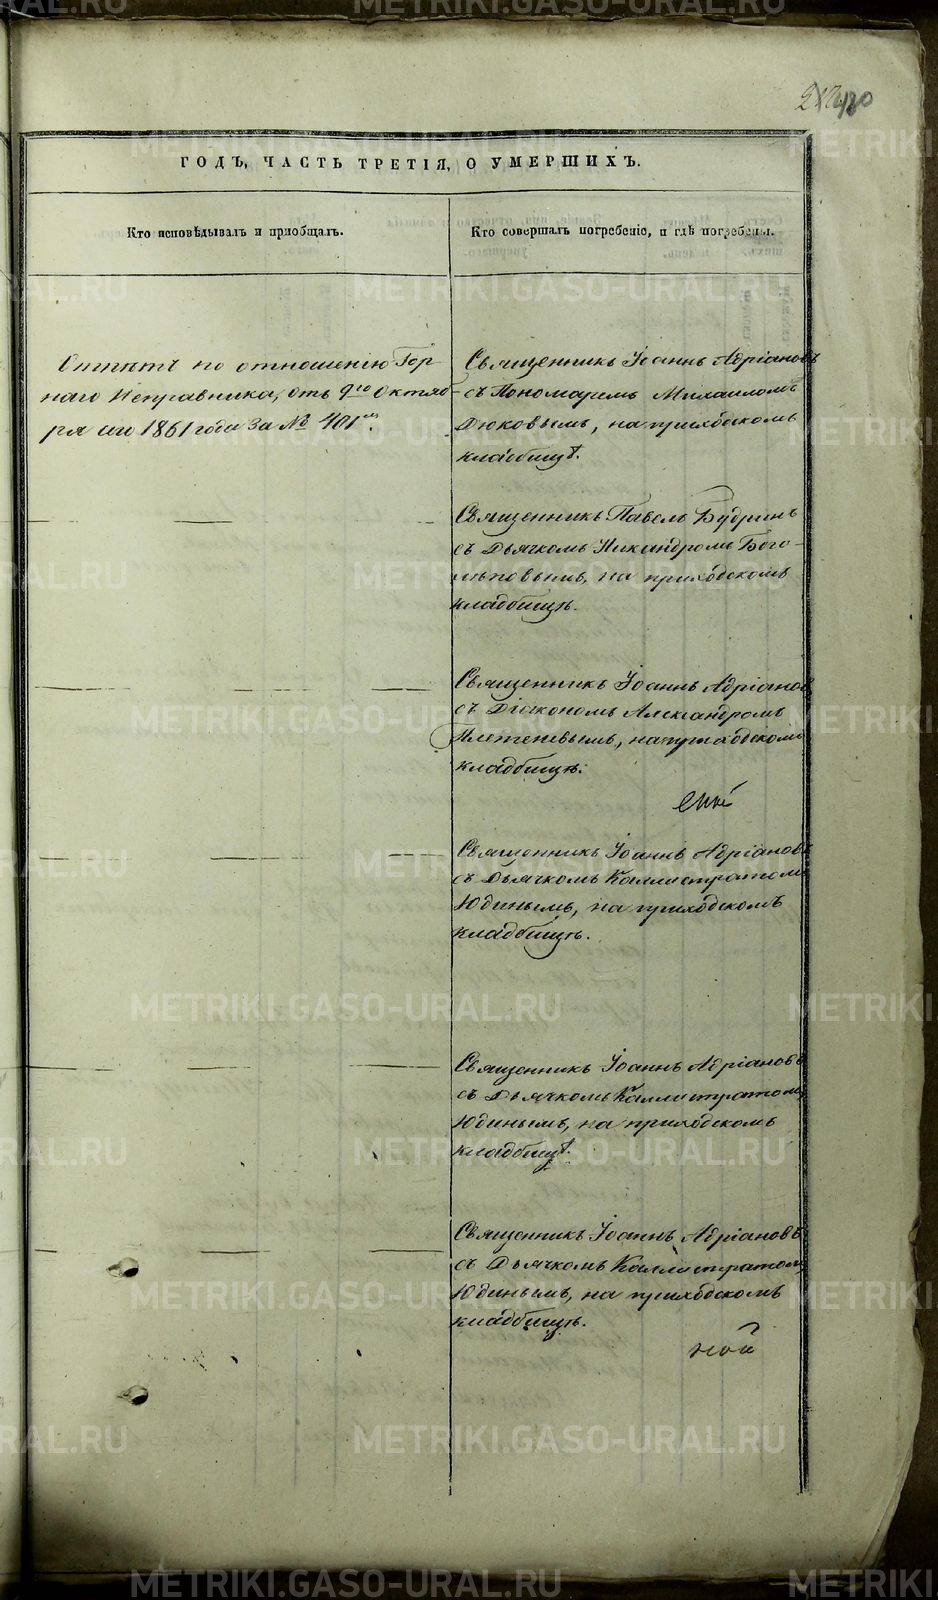 ГОДЪ, ЧАСТЬ ТРЕТІЯ, О УМЕРШИХЪ.
Кто исповѣдывалъ и пріобщалъ.
Кто совершалъ погребеніе, и гдѣ погребены.
Отпѣтъ по отношенію Гор
наго Исправника, отъ 9го Октяб
ря 1861 года за № 401мъ.
Священникъ Іоаннъ Адріановъ
съ Пономаремъ Михаиломъ
Дюковымъ, на приходскомъ
кладбищѣ.
Священникъ Павелъ Будринъ
съ Дьячкомъ Никандромъ Бого-
на приходскомъ
кладбищѣ.
Священникъ Іоаннъ Адріановъ
съ Діакономъ Александромъ
Плетеневымъ, на приходскомъ
кладбищѣ.
Священникъ Іоаннъ Адріановъ
съ Дьячкомъ Каллистратомъ
Юдинымъ, на приходскомъ
кладбищѣ.
Священникъ Іоаннъ Адріановъ
съ Дьячкомъ Каллистратомъ
Юдинымъ, на приходскомъ
кладбищѣ.
Священникъ Іоаннъ Адріановъ
съ Дьячкомъ Каллистратомъ
Юдинымъ, на приходскомъ
кладбищѣ.
ной
METRIKI.GASO-URAL.RU